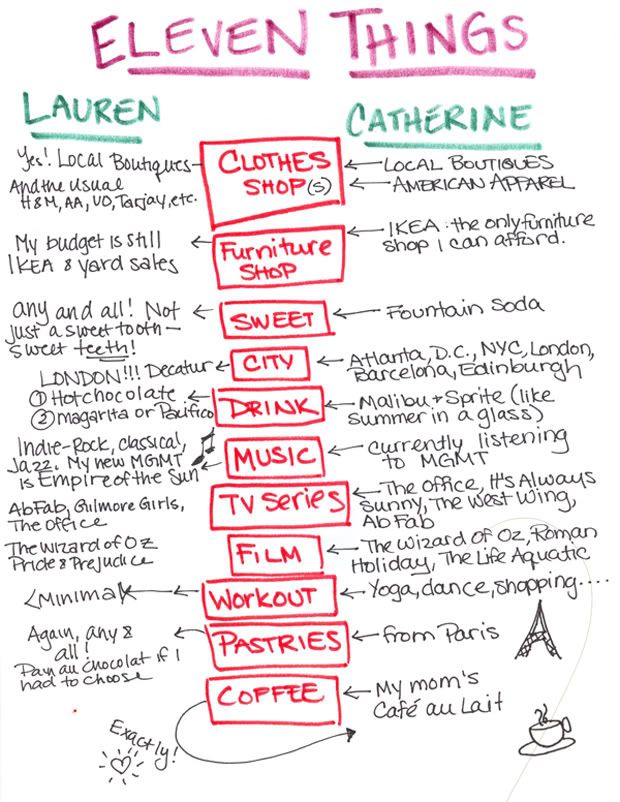 ELEVEN THINGS
LAUREN
CATHERINE
Yes! Local Boutiques
And the usual
H&M, AA, UO, Tarjay, etc.
CLOTHES
SHOP(S)
LOCAL BOUTIQUES
AMERICAN APPAREL
My budget is still
IKEA & yard sales
Furniture
SHOP
IKEA: the only furniture
shop I can afford.
any and all! Not
just a sweet tooth—
sweet teeth!
SWEET
Fountain Soda
LONDON!!! Decatur
CITY
Atlanta, D.C., NYC, London,
Barcelona, Edinburgh
① Hot chocolate
② magarita or Pacifico
DRINK
Malibu + Sprite (like
summer in a glass)
Indie-Rock, classical,
Jazz. My new MGMT
is Empire of the Sun
MUSIC
currently listening
to MGMT
AbFab, Gilmore Girls,
The office
TV Series
The Office, It's Always
Sunny, The West Wing,
AbFab
The Wizard of Oz
Pride & Prejudice
FILM
The Wizard of Oz, Roman
Holiday, The Life Aquatic
Minimal
WORKOUT
Yoga, dance, shopping....
Again, any &
all!
Pain au chocolat if I
had to choose
PASTRIES
from Paris
COFFEE
My mom's
Café au Lait
Exactly!